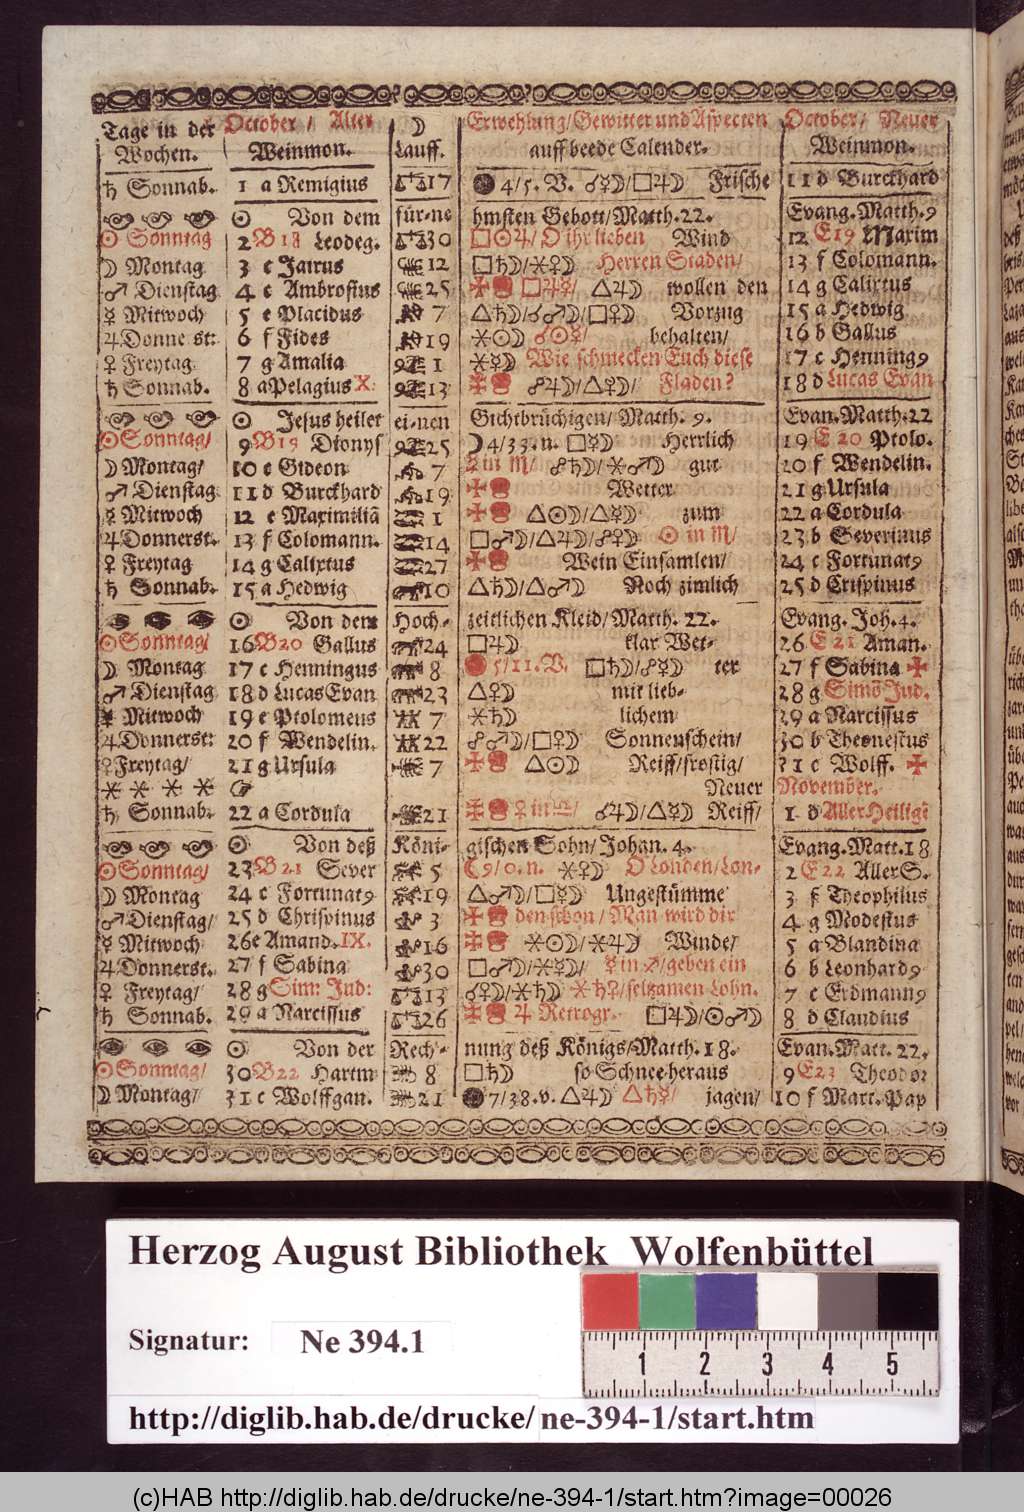 Tage in der October / Alter ☽ Erwehlung/Gewitter und Aspecten October/ Neuer
Wochen. Weinmon. Lauff. auff beede Calender. Weinmon.
♄ Sonnab. 1 a Remigius ♎17 4/5. V. ☌☿☽/□♃☽ Frische 11 d Burckhard
☉ Von dem für-ne hmsten Gebott/Matth. 22. Evang. Matth. 9
☉ Sonntag 2 B 18 Leodeg. ♎30 □☉♃/ O ihr lieben Wind 12 E19 Maxim
☽ Montag 3 c Jairus 12 □♄☽/⚹♀☽ Herren Staden/ 13 f Colomann.
♂ Dienstag 4 c Ambrosius 25 □♃☿/ △♃☽ wollen den 14 g Calixtus
☿ Mitwoch 5 e Placidus 7 △♄☽/☌♂☽/□♀☽ Vorzug 15 a Hedwig
♃ Donne st: 6 f Fides 19 ⚹☉☽ ☌☉☿/ behalten/ 16 b Gallus
♀ Freytag 7 g Amalia 1 ⚹☿☽ Wie schmecken Euch diese 17 c Henning9
♄ Sonnab. 8 a Pelagius X. 13 ☍♃☽/△♀☽/ Fladen? 18 d Lucas Evan
☉ Jesus heilet ei-nen Gichtbrüchigen/ Matth. 9. Evan. Matth. 22
☉ Sonntag/ 9 B19 Dionys 25 ☽ 4/33. n. □☿☽ Herrlich 19 E 20 Ptolo.
☽ Montag/ 10 e Gideon 7 ☿ in ♏/ ☍♄☽/⚹♂☽ gut 20 f Wendelin.
♂ Dienstag 11 d Burckhard 19 Wetter 21 g Ursula
☿ Mitwoch 12 e Maximiliã 1 △☉☽/△☿☽ zum 22 a Cordula
♃ Donnerst. 13 f Colomann. 14 □♂☽/△♃☽/☍♀☽ ☉ in ♏/ 23 b Severinus
♀ Freytag 14 g Calixtus 27 Wein Einsamlen/ 24 c Fortunat9
♄ Sonnab. 15 a Hedwig 10 △♄☽/△♂☽ Noch zimlich 25 d Crispinus
☉ Von dem Hoch- zeitlichen Kleid/Matth. 22. Evang. Joh. 4.
☉ Sonntag/ 16 B20 Gallus 24 □♃☽ klar Wet- 26 E 21 Aman.
☽ Montag 17 c Henningus 8 5/11. V. □♄☽/☍☿☽ ter 27 f Sabina ✠
♂ Dienstag 18 d Lucas Evan 23 △♀☽ mit lieb- 28 g Simõ Jud.
☿ Mitwoch 19 e Ptolomeus 7 ⚹♄☽ lichem 29 a Narcissus
♃ Donnerst: 20 f Wendelin. 22 ☍♂☽/□♀☽ Sonnenschein/ 30 b Theonestus
♀ Freytag/ 21 g Ursula 7 △☉☽ Reiff/frostig/ 31 c Wolff. ✠
⚹ ⚹ ⚹ ⚹ ☞ Neuer November.
♄ Sonnab. 22 a Cordula 21 ♀ in ♎/ ☌♃☽/△☿☽ Reiff/ 1 d Aller Heiligē
☉ Von deß Köni- gischen Sohn/Johan. 4. Evang. Matt. 18
☉ Sonntag/ 23 B 21 Sever 5 ☾ 9/0. n. ⚹♀☽ O Londen/Lon- 2 E22 Aller S.
☽ Montag 24 c Fortunat9 19 △♂☽/□☿☽ Ungestümme 3 f Theophilus
♂ Dienstag/ 25 d Chrispinus 3 den schon/ Man wird dir 4 g Modestus
☿ Mitwoch 26 e Amand. IX. 16 ⚹☉☽/⚹♃☽ Winde/ 5 a Blandina
♃ Donnerst. 27 f Sabina 30 □♂☽/⚹☿☽/ ☿ in ♐/geben ein 6 b Leonhard9
♀ Freytag/ 28 g Sim: Jud: ♎13 ☌♀☽/⚹♄☽ ⚹♄♀/seltzamen Lohn. 7 c Erdmann9
♄ Sonnab. 29 a Narcissus ♎26 ♃ Retrogr. □♃☽/☉♂☽ 8 d Claudius
☉ Von der Rech- nung deß Königs/Matth. 18. Evan. Matt. 22.
☉ Sonntag/ 30 B22 Hartm 8 □♄☽ so Schnee heraus 9 E23 Theodor
☽ Montag/ 31 c Wolffgan. 21 7/38. v. △♃☽ △♄☿/ jagen/ 10 f Mart. Pap
Herzog August Bibliothek Wolfenbüttel
Signatur: Ne 394.1
1 2 3 4 5
http://diglib.hab.de/drucke/ne-394-1/start.htm
(c)HAB http://diglib.hab.de/drucke/ne-394-1/start.htm?image=00026